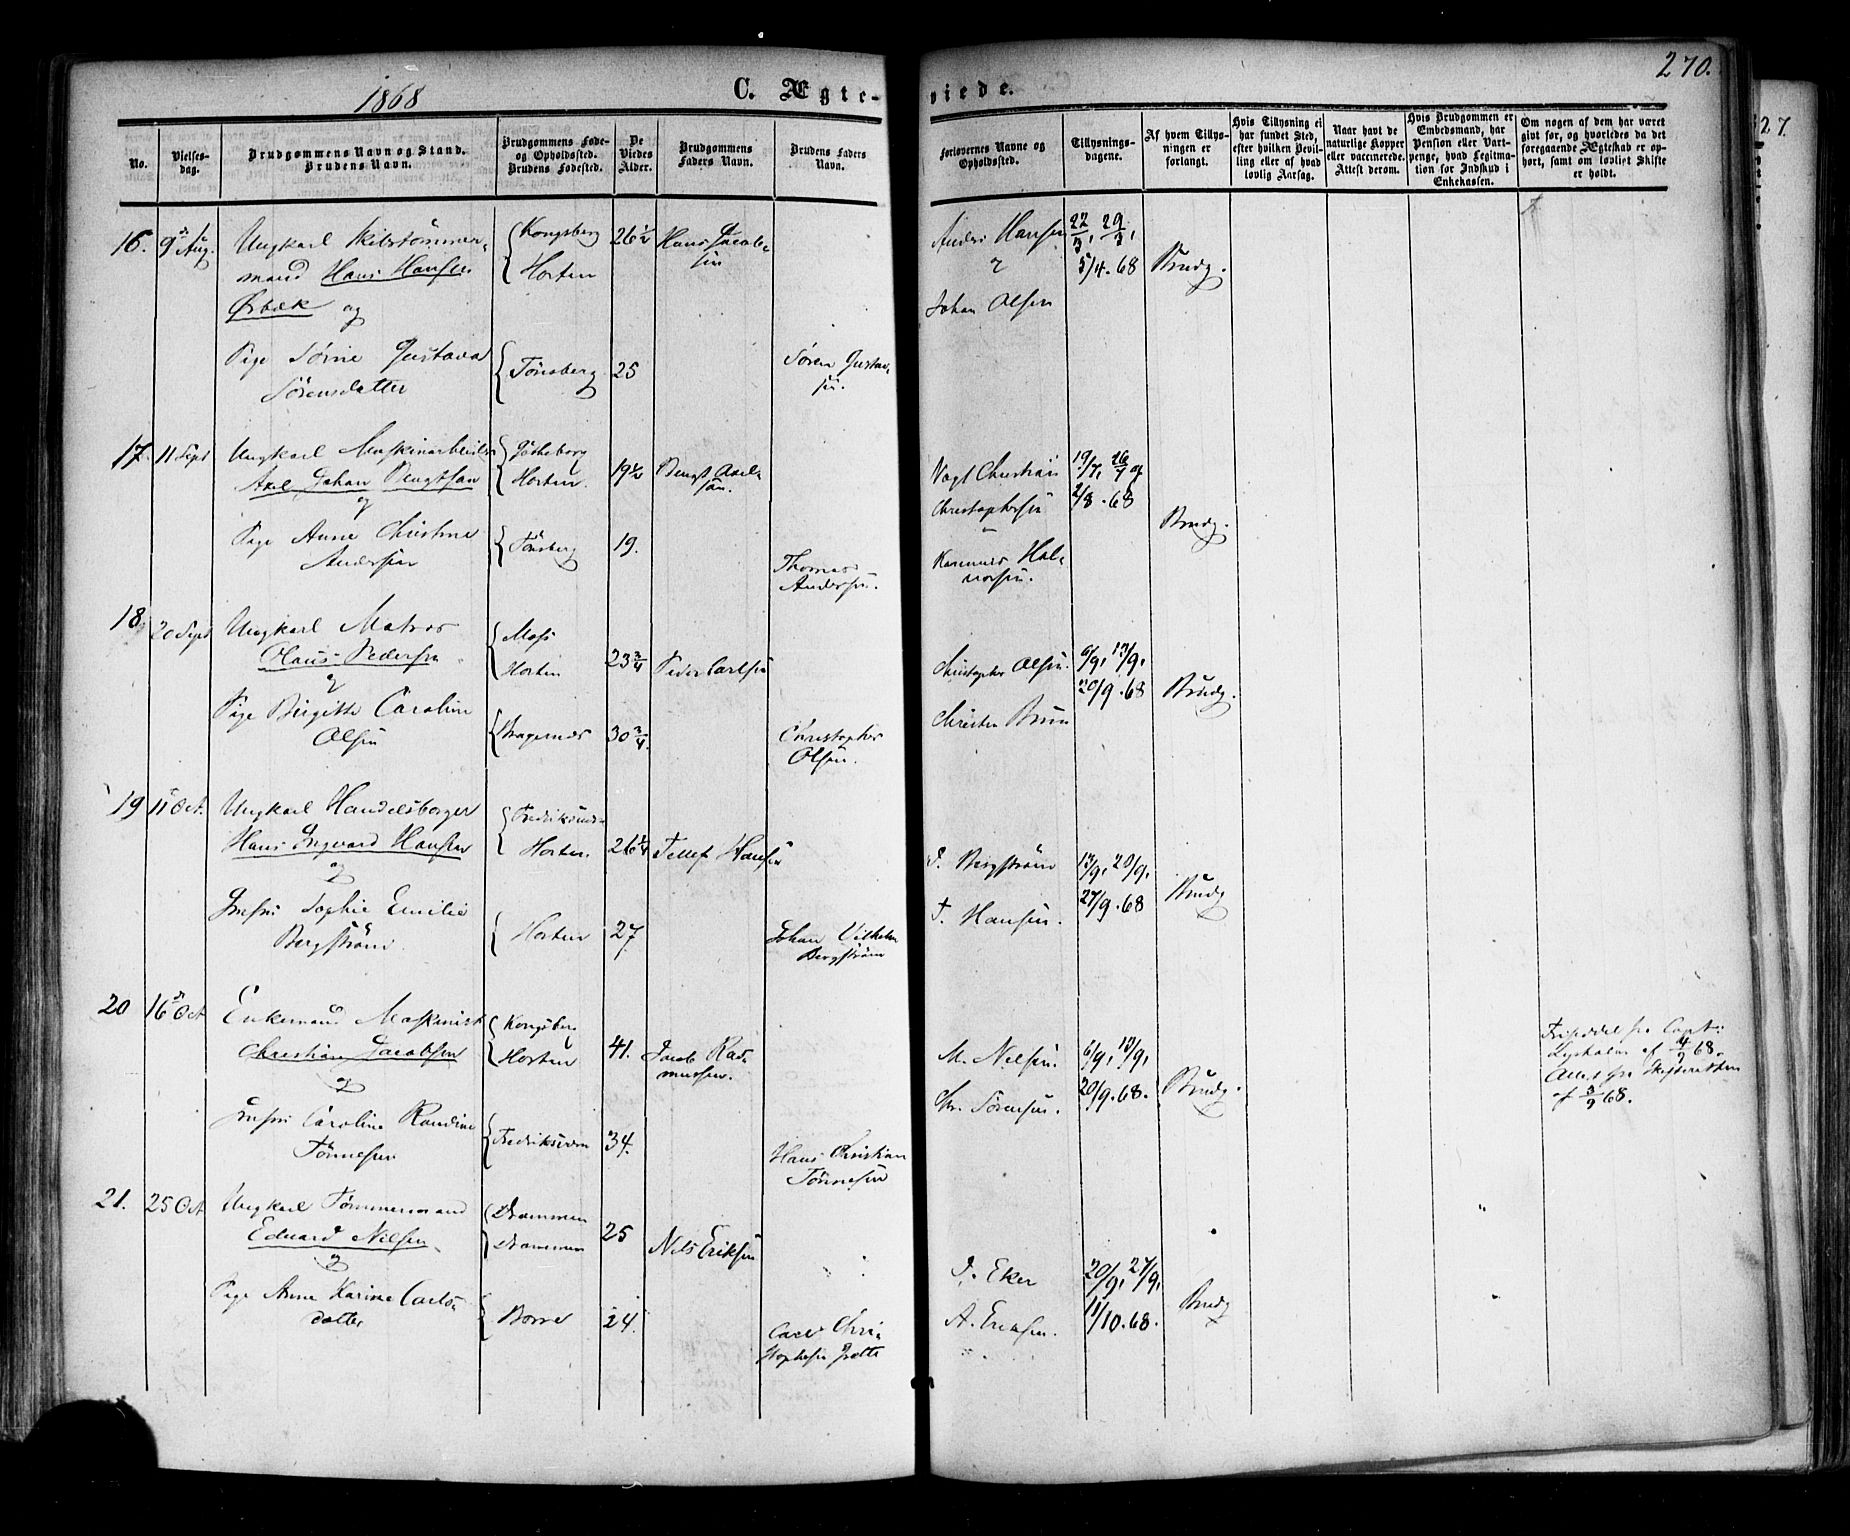 1868
C. Ægte-
viede.
270.
27.
No.
Vielses-
dag.
Brudgommens Navn og Stand.
Brudens Navn.
Brudgommens Føde-
og Opholdssted.
Brudens Fødested.
De
Viedes
Alder.
Brudgommens
Faders Navn.
Brudens Faders
Navn.
Forlovernes Navne og
Opholdssted.
Tillysnings-
dagene.
Af hvem Tillys-
ningen er
forlangt.
Hvis Tillysning ei
har fundet Sted,
efter hvilken Bevil-
ling eller af hvad
lovlig Aarsag.
Naar havt de
naturlige Kopper
eller vaccinerede.
Attest derom.
Hvis Brudgommen er
Embedsmand, har
Pension eller Vart-
penge, hvad Legitima-
tion for Indskud i
Enkekassen.
Om nogen af dem har været
givt før, og hvorledes da det
foregaaende Ægteskab er op-
hørt, samt om lovligt Skifte
er holdt.
16. 9 Aug. Ungkarl Skibstömmer- Kongsberg 26½ Hans Jacob-
mand Hans Hansen Horten sen
Ørbæk og
Pige Sørine Gustava Tönsberg 25 Søren Gustav-
Sörensdatter sen.
Anders Hansen 22/3, 29/3,
5/4.68 Brudg.
Johan Olsen
17. 11 Sept Ungkarl Maskinarbeider Götheborg 19½ Bengt Axel-
Axel Johan Bengtson Horten. son.
og
Pige Anne Christine Tönsberg 19.
Andersen Thomas
Andersen.
Vogt Christian 19/7, 26/7 og
Christophersen 2/8.68 Brudg.
Hal-
vorsen.
18. 20 Sept Ungkarl Matros Moss
Olaus Pedersen Horten 23¾ Peder Carlsen
og
Pige Birgitte Caroline Bragernæs 30¾ Christopher
Olsen Olsen.
Christopher Olsen. 6/9, 13/9,
20/9.68 Brudg.
Christen Brun
19 11 Oct. Ungkarl Handelsborger Fredriksværn
Hans Ingvard Hansen Horten 26¼ Tellef Hansen
og
Jmfru Sophie Emilie Horten 27 Johan Vilhelm
Bergström Bergström
J. Bergström 13/9, 20/9,
27/9.68 Brudg
T. Hansen.
20 16 Oct Enkemand Maskinist Kongsberg
Christian Jacobsen Horten 41. Jacob Ras-
og mussen.
Jmfru Caroline Randine Fredriksværn 34.
Tönnesen Hans Christian
Tönnesen
M. Nilsen. 6/9, 13/9,
20/9.68. Brudg.
Chr. Sörensen.
Capt:
af 4/9 68.
Attest fra Skifteretten
af 3/9 68.
21. 25 Oct Ungkarl Tømmermand Drammen
Eduard Nilsen Drammen 25 Nils Eriksen
og
Pige Anne Karine Carls- Borre 24.
datter Carl Chri-
stophersen
J. Eker 20/9, 27/9,
A. Eriksen. 11/10.68. Brudg